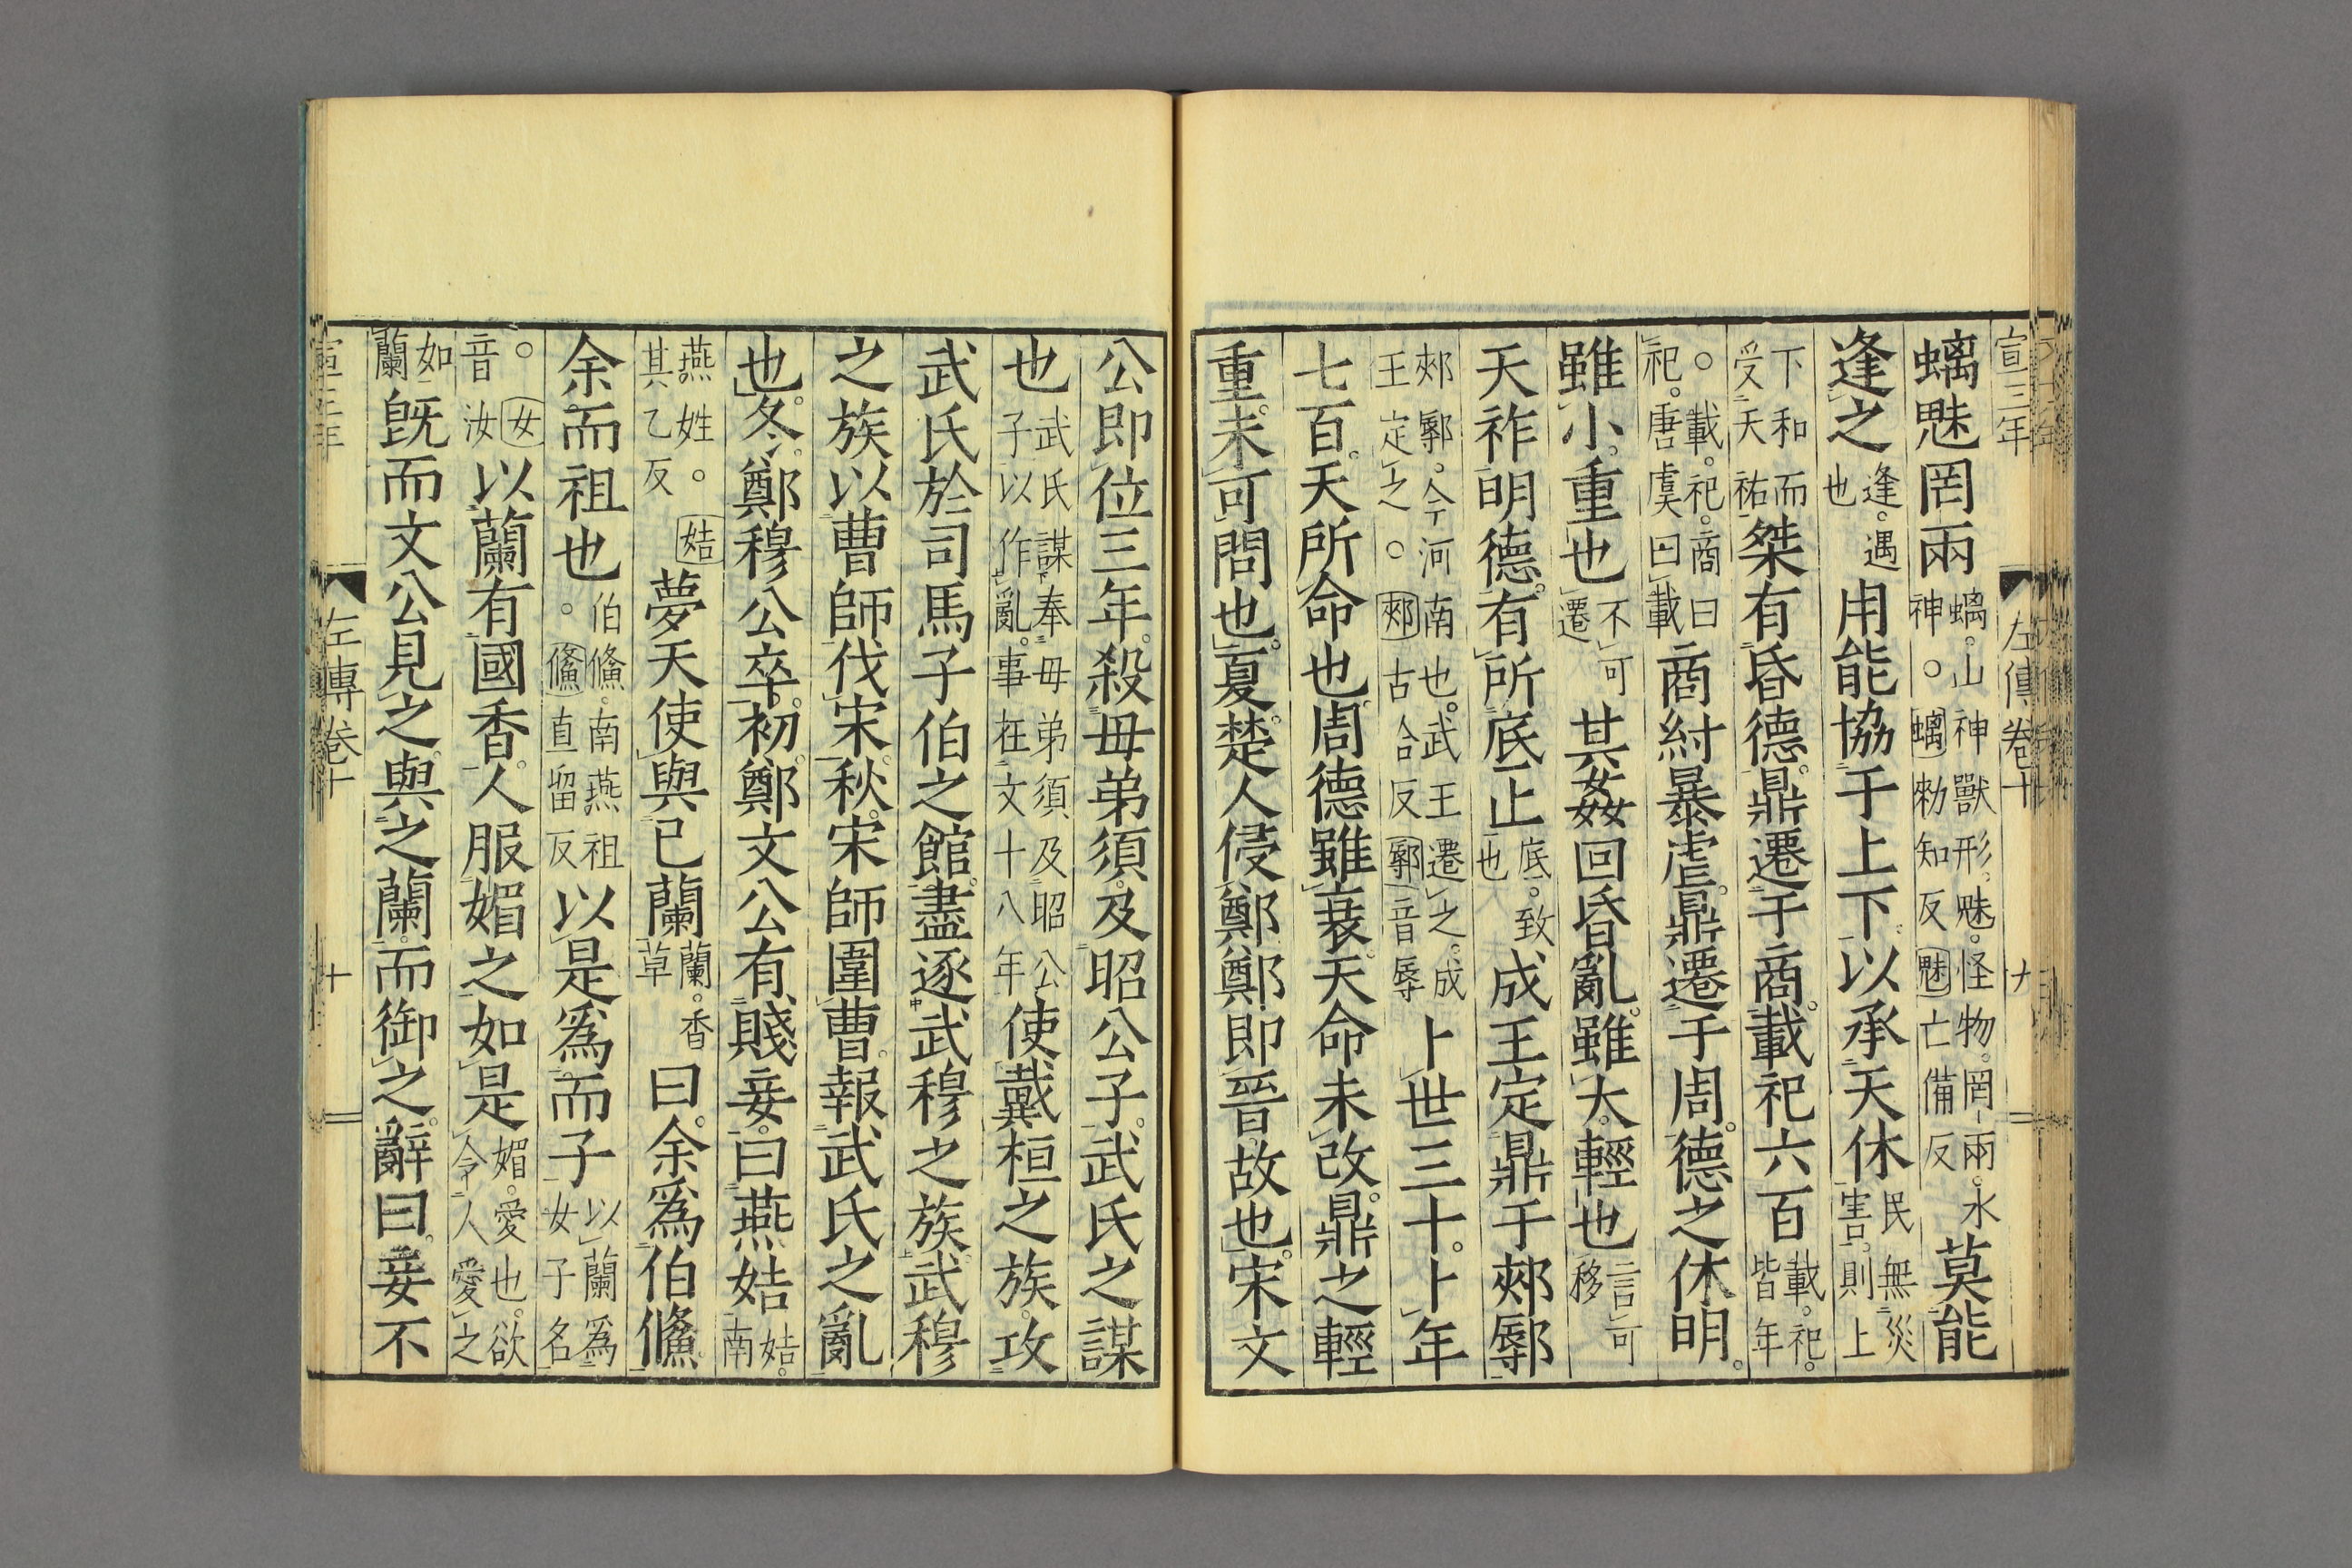 宣三年 左傳卷十 九
螭魅罔兩螭。山神獸形。魅。怪物。罔兩。水神。○螭勑知反魅亡備反莫能
逢之逢。遇也用能協于上下。以承天休民無災害。則上
下和而受天祐桀有昏德。鼎遷于商。載祀六百載。祀。皆年
○載。祀。商曰祀。唐虞曰載商紂暴虐。鼎遷于周。德之休明。
雖小。重也不可遷其姦回昏亂。雖大。輕也言可移
天祚明德。有所底止底。致也成王定鼎于郟鄏
郟鄏。今河南也。武王遷之。成王定之。○郟古合反鄏音辱卜世三十。卜年
七百。天所命也。周德雖衰。天命未改。鼎之輕
重。未可問也。夏。楚人侵鄭。鄭即晉故也。宋文
公即位三年。殺毋弟須。及昭公子。武氏之謀
也武氏謀奉毋弟須及昭公子以作亂。事在文十八年使戴桓之族。攻
武氏於司馬子伯之館。盡逐武穆之族。武穆
之族。以曹師伐宋。秋。宋師圍曹。報武氏之亂
也。冬。鄭穆公卒。初。鄭文公有賤妾。曰燕姞姞。南
燕姓。○姞其乙反夢天使與已蘭蘭。香草曰。余爲伯鯈
余而祖也伯鯈。南燕祖。○鯈直留反以是爲而子以蘭爲女子名
○女音汝以蘭有國香。人服媚之如是媚。愛也。欲令人愛之
如蘭旣而文公見之。與之蘭。而御之。辭曰。妾不
宣三年 左傳卷十 十